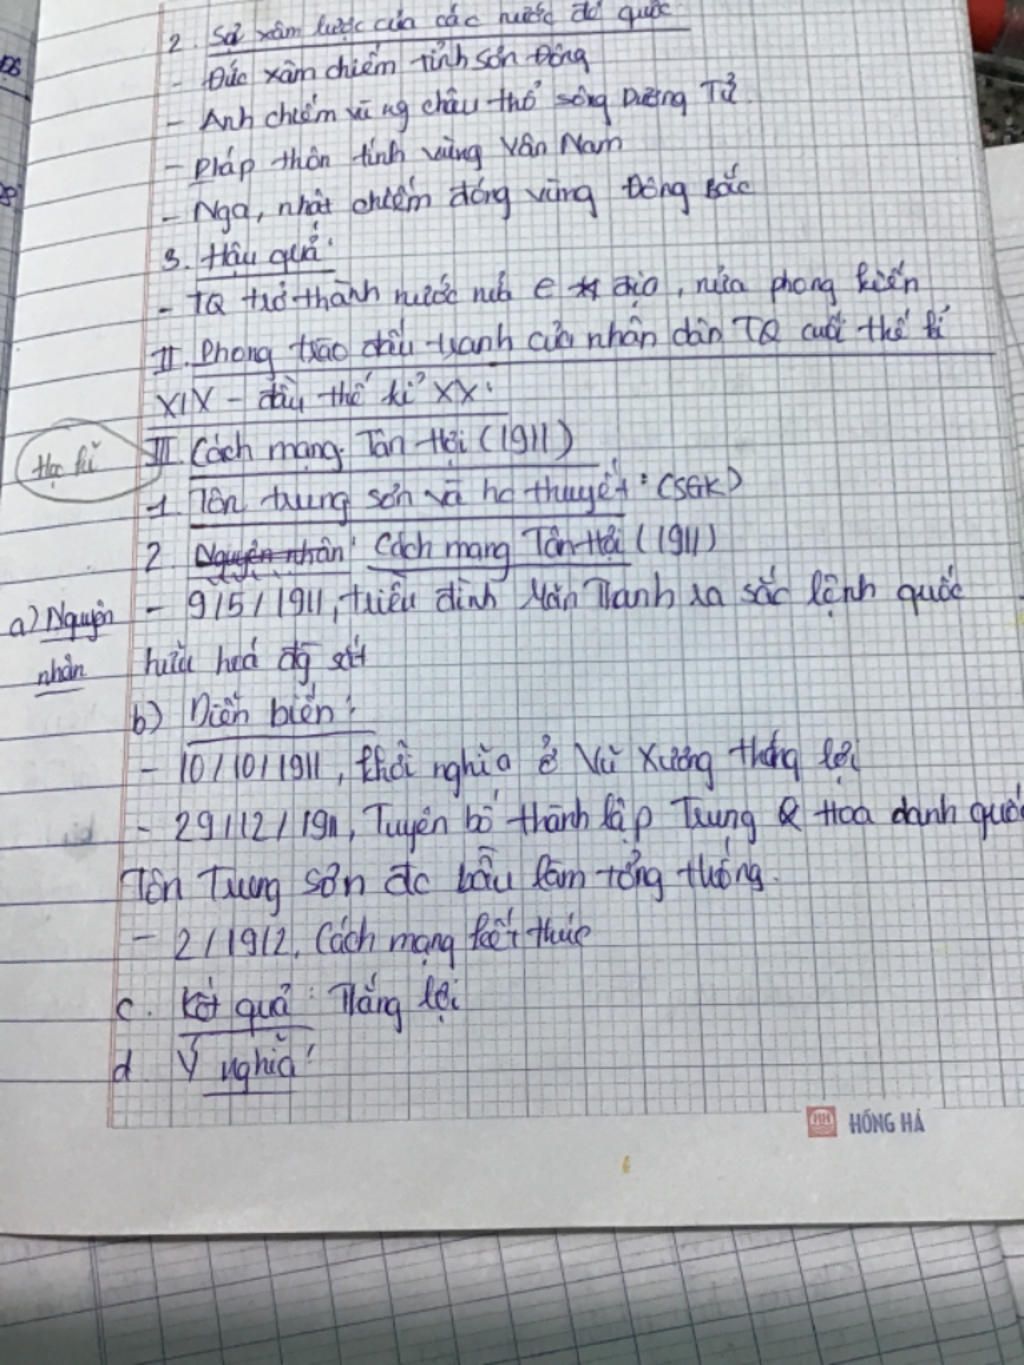 2. Sự xâm lược của các nước đế quốc
- Đức xâm chiếm tỉnh Sơn Đông
- Anh chiếm vùng châu thổ sông Dương Tử
- Pháp thôn tính vùng Vân Nam
- Nga, nhật chiếm đóng vùng Đông Bắc
3. Hậu quả:
- TQ trở thành nước nửa địa, nửa phong kiến
II. Phong trào đấu tranh của nhân dân TQ cuối thế kỉ
XIX - đầu thế kỉ XX:
Học kĩ
III. Cách mạng Tân Hợi (1911)
1. Tôn trung sơn và học thuyết: (SGK)
2 Nguyên nhân: Cách mạng Tân Hợi (1911)
a) Nguyên nhân
- 9/5/1911, triều đình Mãn Thanh ra sắc lệnh quốc
hữu hoá đg sắt
b) Diễn biến:
- 10/10/1911, khởi nghĩa ở Vũ Xương thắng lợi
- 29/12/1911, Tuyên bố thành lập Trung Hoa danh quốc
Tôn Trung Sơn đc bầu làm tổng thống.
- 2/1912, Cách mạng kết thúc
c. Kết quả: Thắng lợi
d Ý nghĩa:
HỒNG HÀ